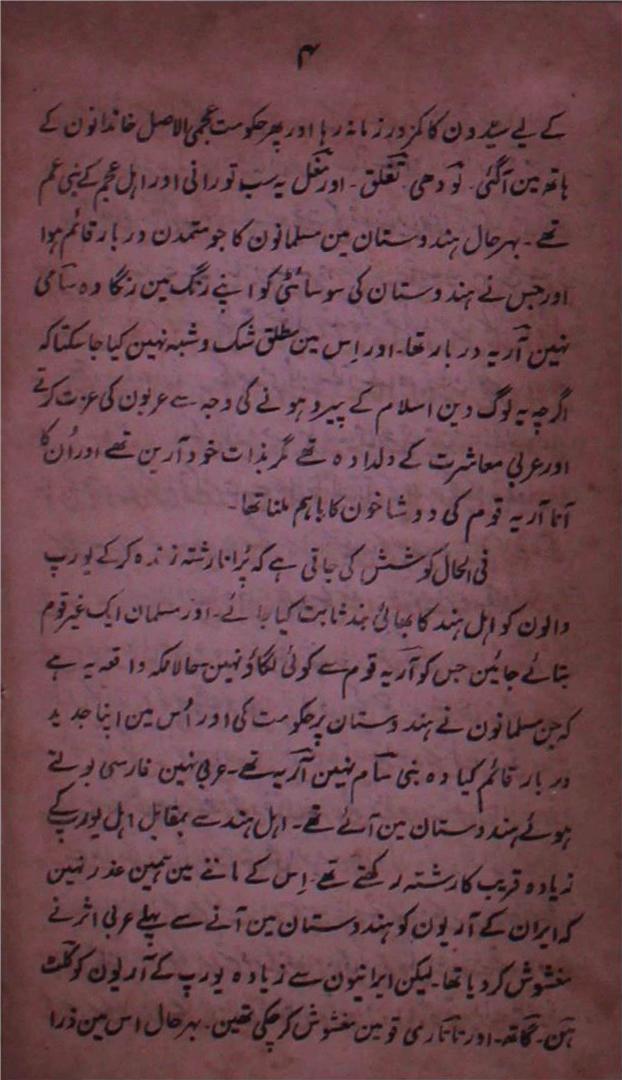 ۴
کے لیے سیّدون کا کمزور زمانہ رہا اور پھر حکومت عجمی الاصل خاندانون کے
ہاتھ مین آگئی۔ لودھی۔ تغلق۔ اور مغل یہ سب تورانی اور اہل عجم کے بنی عم
تھے۔ بہر حال ہندوستان مین مسلمانون کا جو متمدن دربار قائم ہوا
اور جس نے ہندوستان کی سوسائٹی کو اپنے رنگ مین رنگا وہ سامی
نہین آریہ دربار تھا۔ اور اِس مین مطلق شک و شبہ نہین کیا جا سکتا کہ
اگرچہ یہ لوگ دین اسلام کے پیرو ہونے کی وجہ سے عربون کی عزت کرتے
اور عربی معاشرت کے دلدادہ تھے مگر بذات خود آرین تھے اور اُن کا
آنا آریہ قوم کی دو شاخون کا باہم ملنا تھا۔
فی الحال کوشش کی جاتی ہے کہ پُرانا رشتہ زندہ کر کے یورپ
والون کو اہل ہند کا بھائی بند ثابت کیا جائے۔ اور مسلمان ایک غیر قوم
بتائے جائین جس کو آریہ قوم سے کوئی لگاؤ نہین۔ حالانکہ واقعہ یہ ہے
کہ جن مسلمانون نے ہندوستان پر حکومت کی اور اُس مین اپنا جدید
دربار قائم کیا وہ بنی سام نہین آریہ تھے۔ عربی نہین فارسی بولتے
ہوئے ہندوستان مین آئے تھے۔ اہل ہند سے بمقابل اہل یورپ کے
زیادہ قریب کا رشتہ رکھتے تھے۔ اِس کے ماننے مین ہمین عذر نہین
کہ ایران کے آریون کو ہندوستان مین آنے سے پہلے عربی اثر نے
مغشوش کر دیا تھا۔ لیکن ایرانیون سے زیادہ یورپ کے آریون کو کلٹ
ہن۔ گاتھ۔ اور تاتاری قومین مغشوش کر چکی تھین۔ بہر حال اس مین ذرا